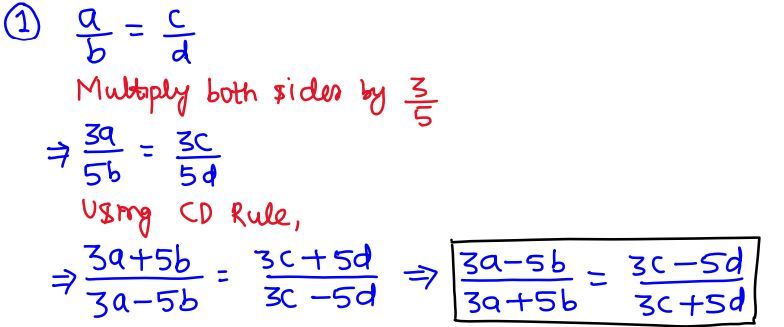 ① a/b = c/d
Multiply both sides by 3/5
⇒ 3a/5b = 3c/5d
Using CD Rule,
⇒ (3a+5b)/(3a-5b) = (3c+5d)/(3c-5d) ⇒ (3a-5b)/(3a+5b) = (3c-5d)/(3c+5d)